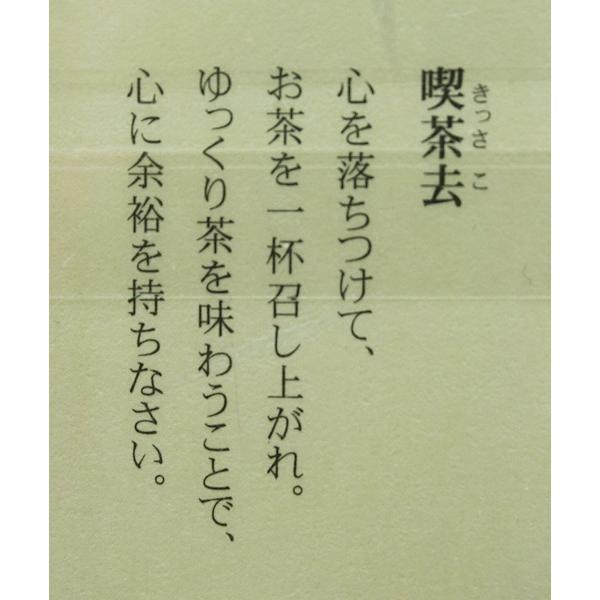 喫茶去
きっさこ
心を落ちつけて、
お茶を一杯召し上がれ。
ゆっくり茶を味わうことで、
心に余裕を持ちなさい。